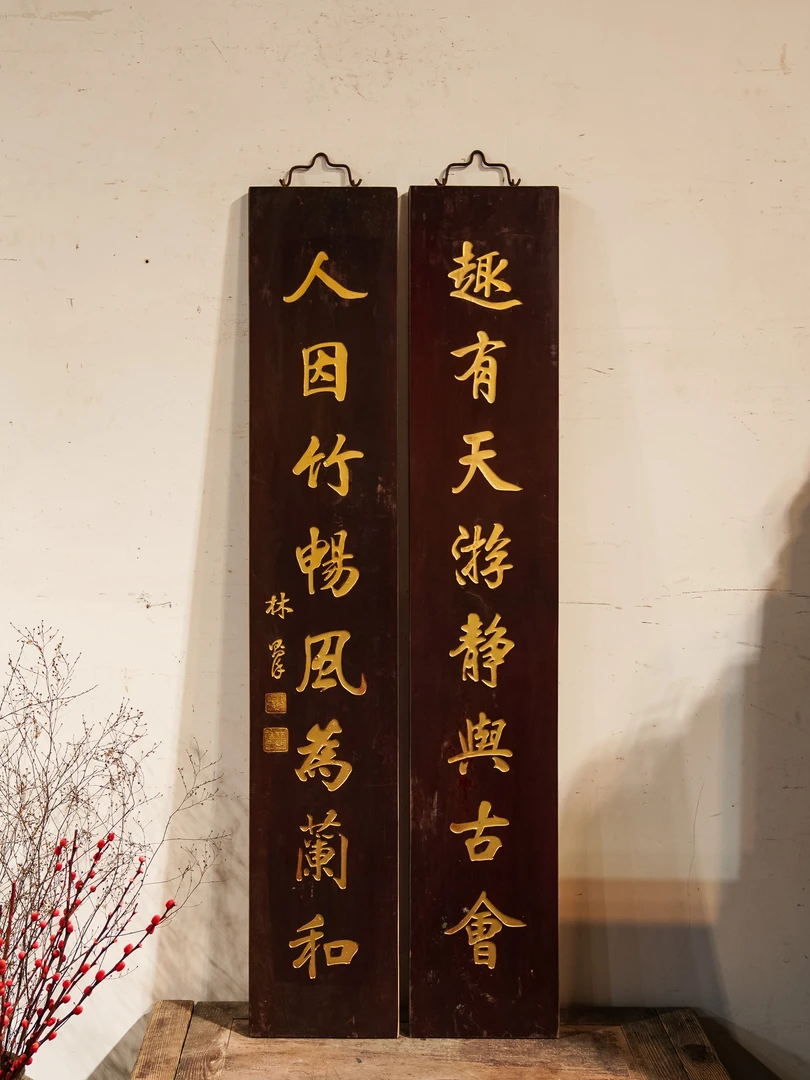 趣有天游静與古會
人因竹暢風為蘭和
林